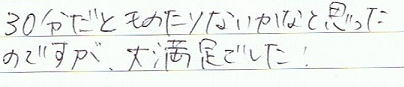 30分だとものたりないかなと思った
のですが、大満足でした！